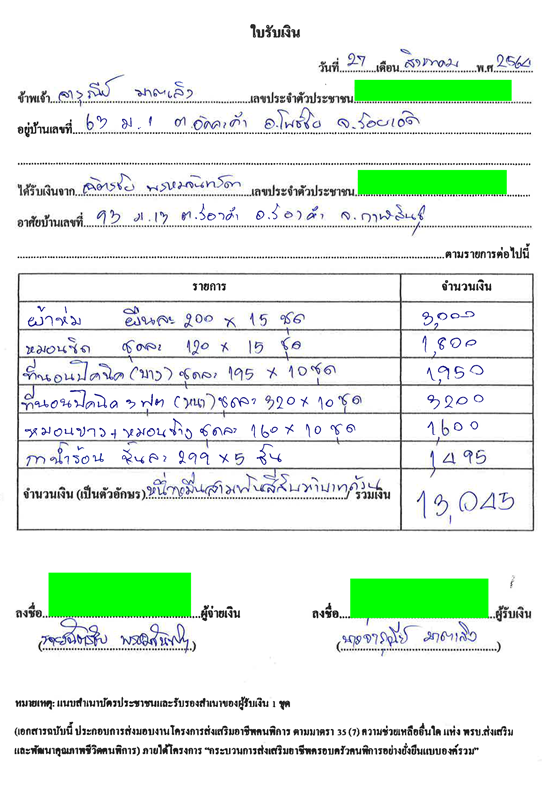 ใบรับเงิน
วันที่ 27 เดือน สิงหาคม พ.ศ 2564
ข้าพเจ้า จารุณีย์ มาตเลิง เลขประจำตัวประชาชน
อยู่บ้านเลขที่ 63 ม.1 ต.อัคคะคำ อ.โพธิ์ชัย จ.ร้อยเอ็ด
ได้รับเงินจาก ฉัตรชัย พรหมจันทร์ดา เลขประจำตัวประชาชน
อาศัยบ้านเลขที่ 93 ม.13 ต.ร่องคำ อ.ร่องคำ จ.กาฬสินธุ์
ตามรายการต่อไปนี้
รายการ จำนวนเงิน
ผ้าห่ม ผืนละ 200 x 15 ชุด 3,000
หมอนขิด ชุดละ 120 x 15 ชุด 1,800
ที่นอนปิคนิค (บาง) ชุดละ 195 x 10 ชุด 1,950
ที่นอนปิคนิค 3 ฟุต (หนา) ชุดละ 320 x 10 ชุด 3200
หมอนขาว + หมอนข้าง ชุดละ 160 x 10 ชุด 1,600
กาน้ำร้อน ชิ้นละ 299 x 5 ชิ้น 1,495
จำนวนเงิน (เป็นตัวอักษร) หนึ่งหมื่นสามพันสี่สิบห้าบาทถ้วน รวมเงิน 13,045
ลงชื่อ ผู้จ่ายเงิน ลงชื่อ ผู้รับเงิน
( ) (นางจารุณีย์ มาตเลิง)
หมายเหตุ: แนบสำเนาบัตรประชาชนและรับรองสำเนาของผู้รับเงิน 1 ชุด
(เอกสารฉบับนี้ ประกอบการส่งมอบงานโครงการส่งเสริมอาชีพคนพิการ ตามมาตรา 35 (7) ความช่วยเหลืออื่นใด แห่ง พรบ.ส่งเสริม
และพัฒนาคุณภาพชีวิตคนพิการ) ภายใต้โครงการ "กระบวนการส่งเสริมอาชีพครอบครัวคนพิการอย่างยั่งยืนแบบองค์รวม"